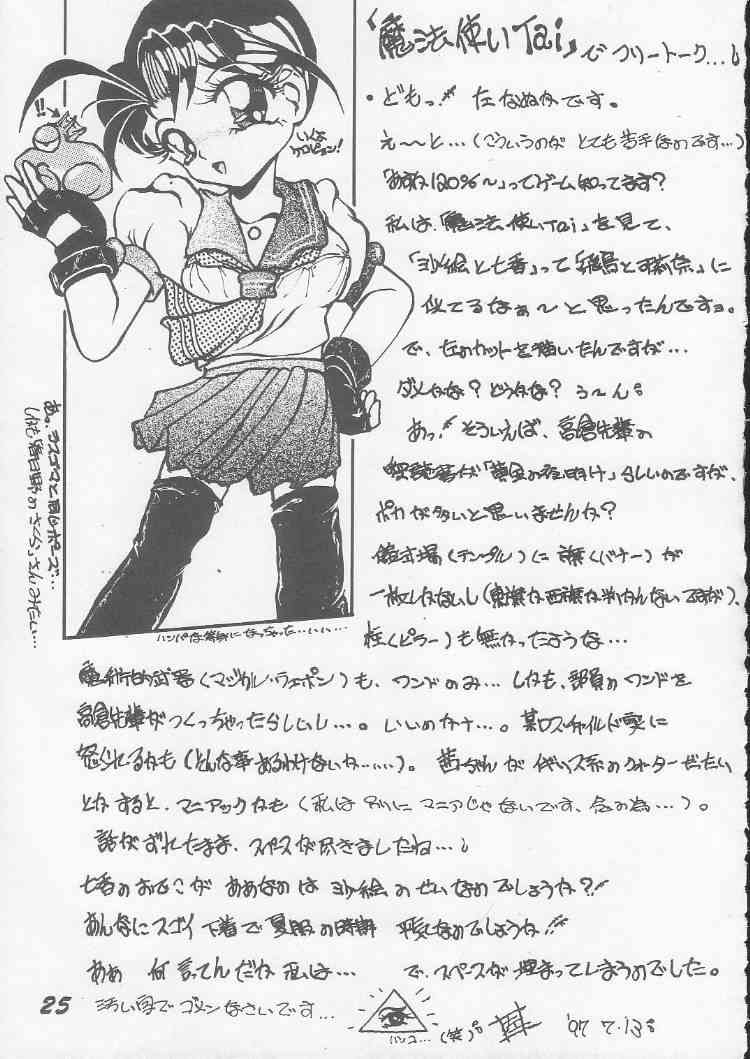 「魔法使いTai」でフリートーク…
・どもっ!! たなぬかです。
え〜と…(こういうのが とても苦手なのです…)
「あすか120%〜」ってゲーム知ってます?
私は「魔法使いTai」を見て、
「沙絵と七香」って「飛鳥と可莉奈」に
似てるなぁ〜と思ったんですョ。
で、左のカットを描いたんですが…
ダメかな? どうかな? う〜ん。
あっ!! そういえば、高倉先輩の
「黄金の夜明け」らしいのですが、
ポカが多いと思いませんか?
儀式場(テンプル)に旗(バナー)が
一枚しかないし(東旗か西旗か判んないですが)、
柱(ピラー)も無かったような…
魔術的武器(マジカル・ウェポン)も、ワンドのみ…しかも、部員のワンドを
高倉先輩がつくっちゃったらしいし…。いいのかナ…。某ロスチャイルド家に
怒られるかも(どんな事あるわけないか……)。茜ちゃんがイギリス系のクォーターだったい
とかすると、マニアックかも(私は別にマニアじゃないです、念の為…)。
話がずれたまま、スペースが尽きましたね…
七香のおでこが ああなのは 沙絵のせいなのでしょうか?!
あんなにスゴイ下着で夏服の時期 平気なのでしょうか!!
ああ 何言ってんだか私は… で、スペースが埋まってしまうのでした。
汚い字でゴメンなさいです…
ハンコ… (笑)。
'97 7.13
25
!!
いくよ ケロピョン!
あ。ラスゴマと同じポーズ…
しかも「春日野さくら」さんみたい…
ハンパな等身になっちゃった……